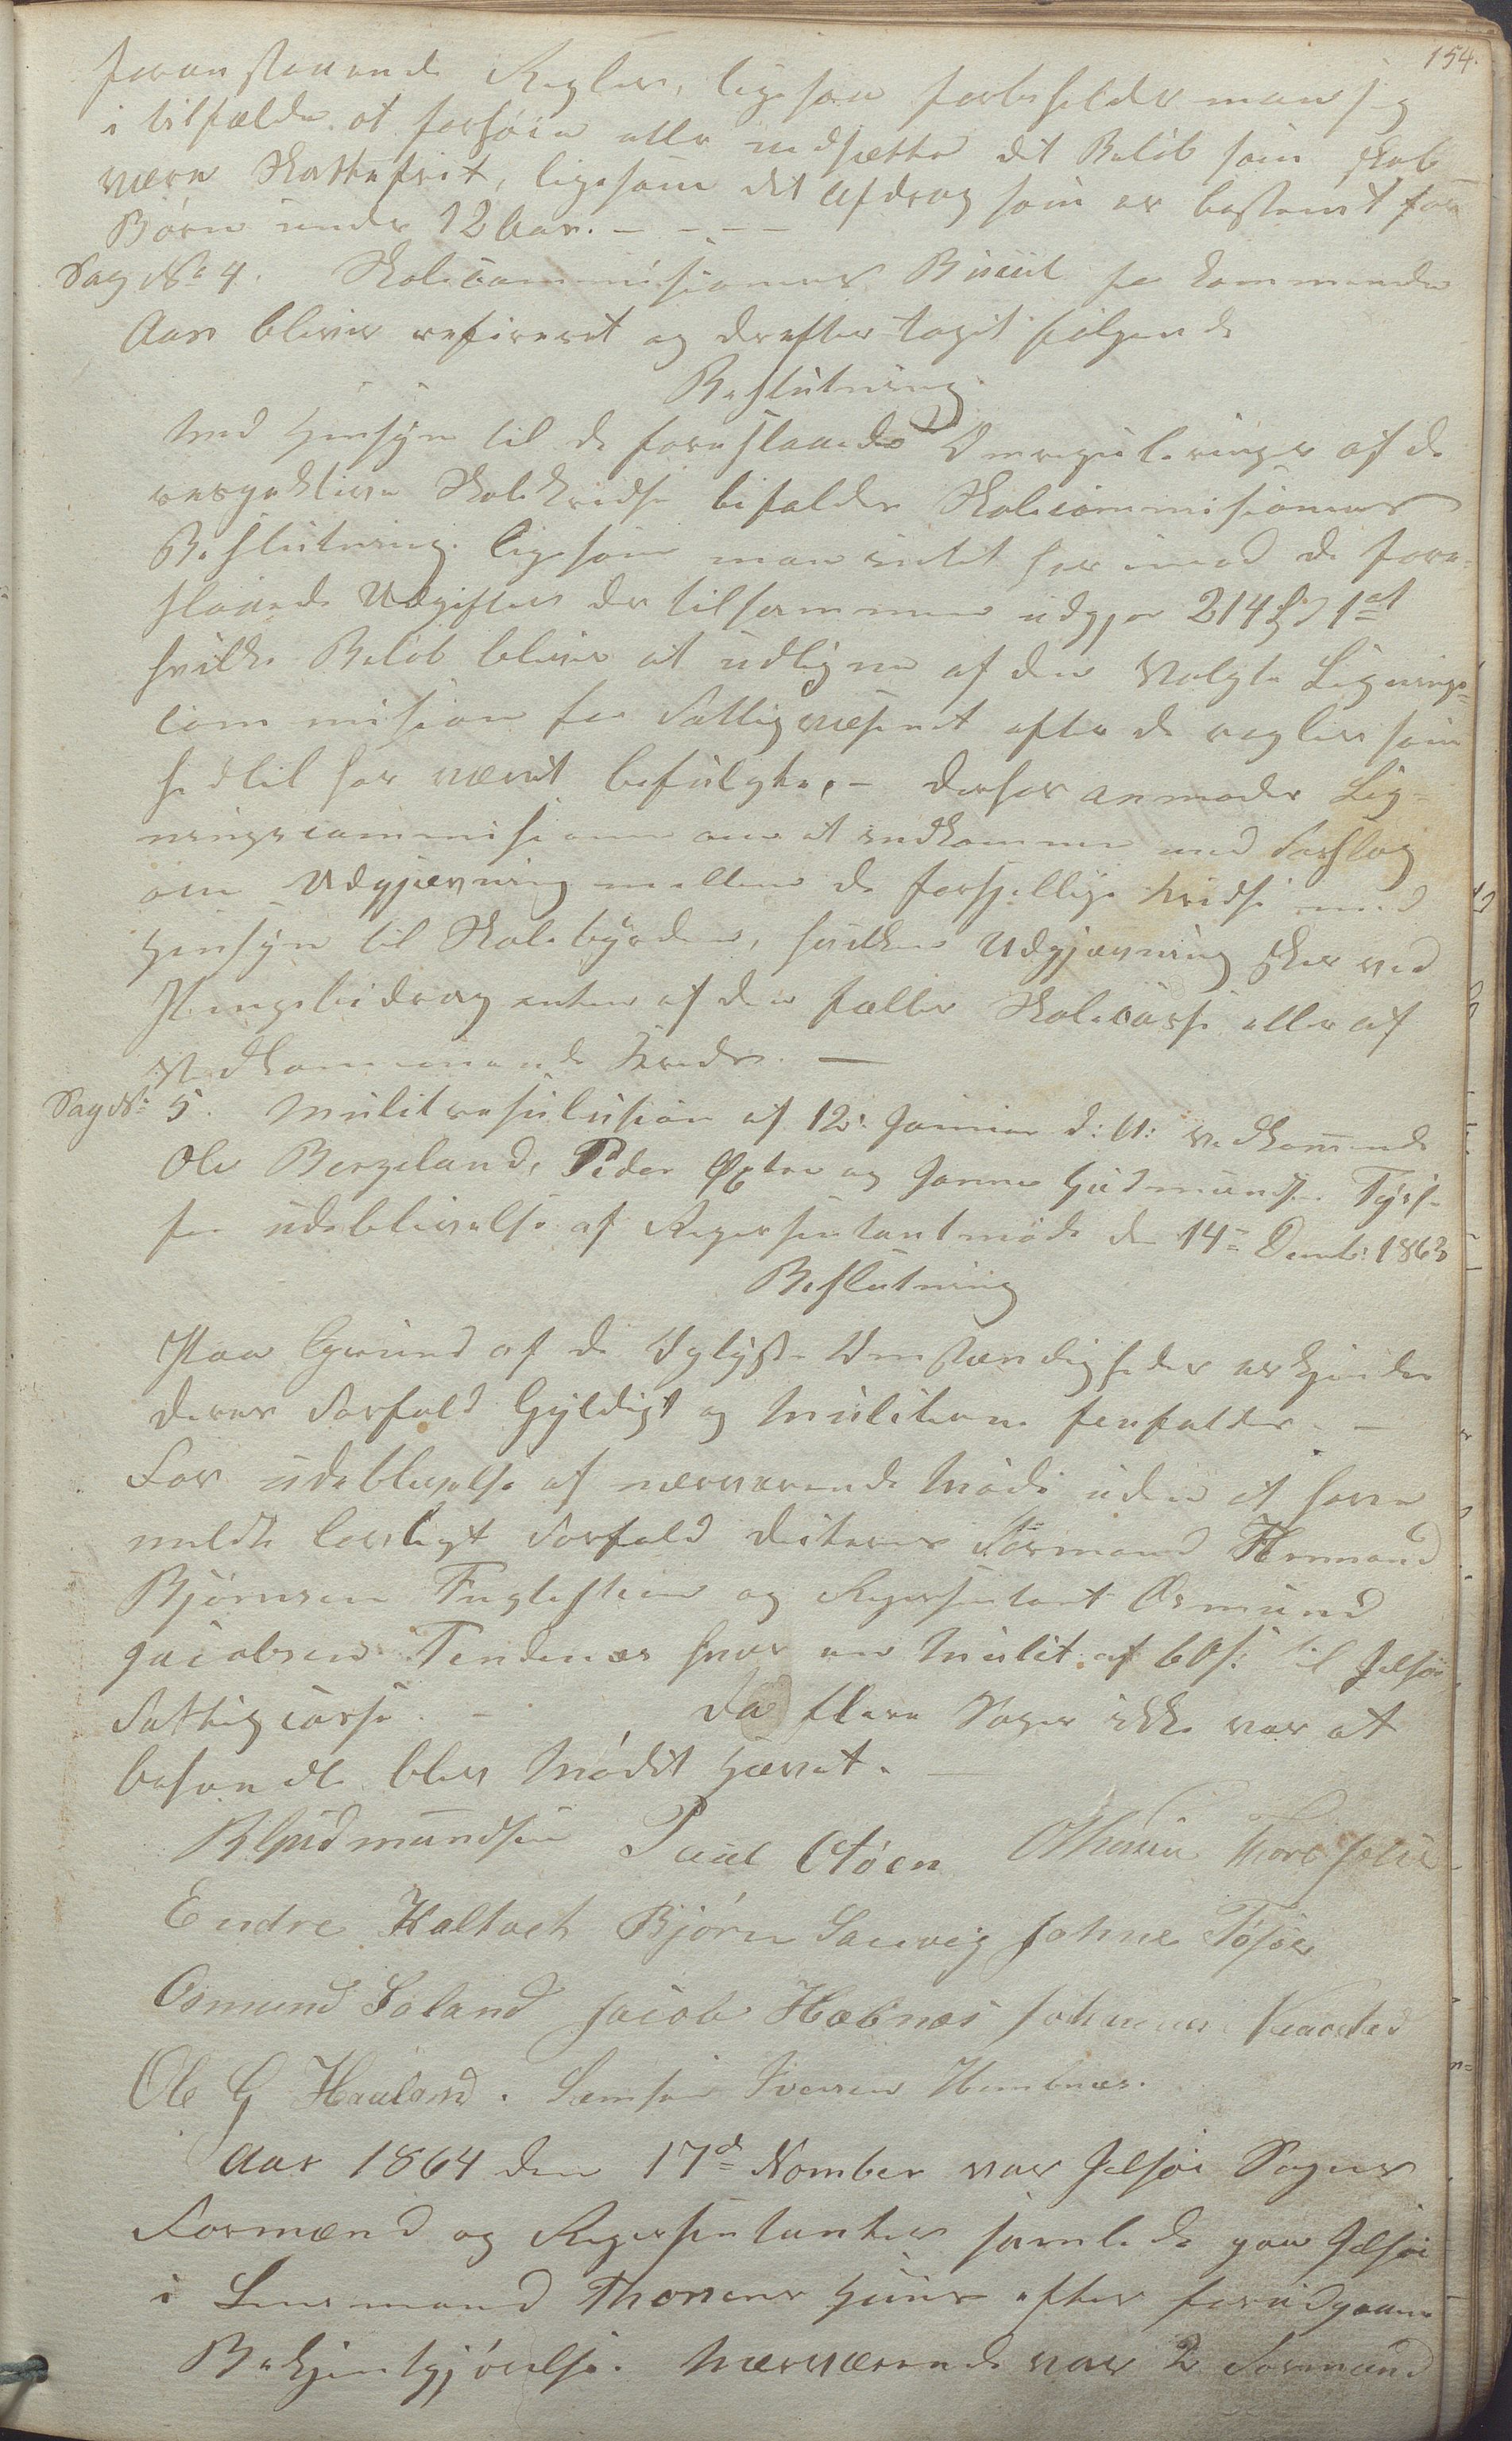 154.
foranstaaende Regler, ligesaa forbeholder man sig
i tilfælde at forhøie eller nedsætte det Beløb som skal
være Skattefrit, ligesom det Afdrag som er bestemt for
Børn under 12 Aar. - - - -
Sag No 4. Skolecommisionens Budget for kommende
Aar bliver refereret og derefter taget følgende
Beslutning.
Med Hensyn til de foreslaaede Omreguleringer af de
respektive Skolekredse bifalder Skolecommisionens
Beslutning. ligesom man intet har imod de fore-
slaaede Udgifter der tilsammen udgjør 214 Spd 1 ort
hvilke Beløb bliver at udligne af den valgte Lignings-
commision for Fattigvæsenet efter de regler som
hidtil har været befulgte, - derhos anmodes Lig-
ningscommisionen om at indkomme med Forslag
om Udgjævning mellem de forskjellige Kredse med
Hensyn til Skolebyrden, hvilken Udgjævning sker ved
Pengebidrag enten af den fælles Skolecasse eller af
vedkommende Kreds. —
Sag No 5. Mulktresolusion af 12: Januar d: A: vedkommende
Ole Bergeland, Peder Østre og Gudmundsen
for udeblivelse af Repersentantmøde den 14de Decemb: 1863
Beslutning
Paa Grund af de Oplyste Omstændigheder erkjendes
deres Forfald Gyldigt og Mulkterne frafalder. —
For udeblivelse af nærværende Møde uden at have
meldt lovligt Forfald dicteres Formand
Bjørnsen Fuglestein og Repersentant Osmund
Jacobsen Tendenes hver en Mulkt af 60 s: til Jelsøe
Fattigcasse. - Da flere Sager ikke var at
behandle blev Mødet hævet. —
B Gudmundsen Paul Støen
Endre Kaltvet Bjørn Sauvig Johne Tøsse
Osmund Foland Jacob Hebnes Johannes
Ole G Hauland. Samson Iversen Hembnæs.
Aar 1864 den 17de Novmber var Jelsøe Sogns
Formænd og Repersentanter samlede paa Jelsøe
i Lensmand Thorsens Huus efter forudgaaende
Bekjentgjørelse. Nærværende var 2 Formænd